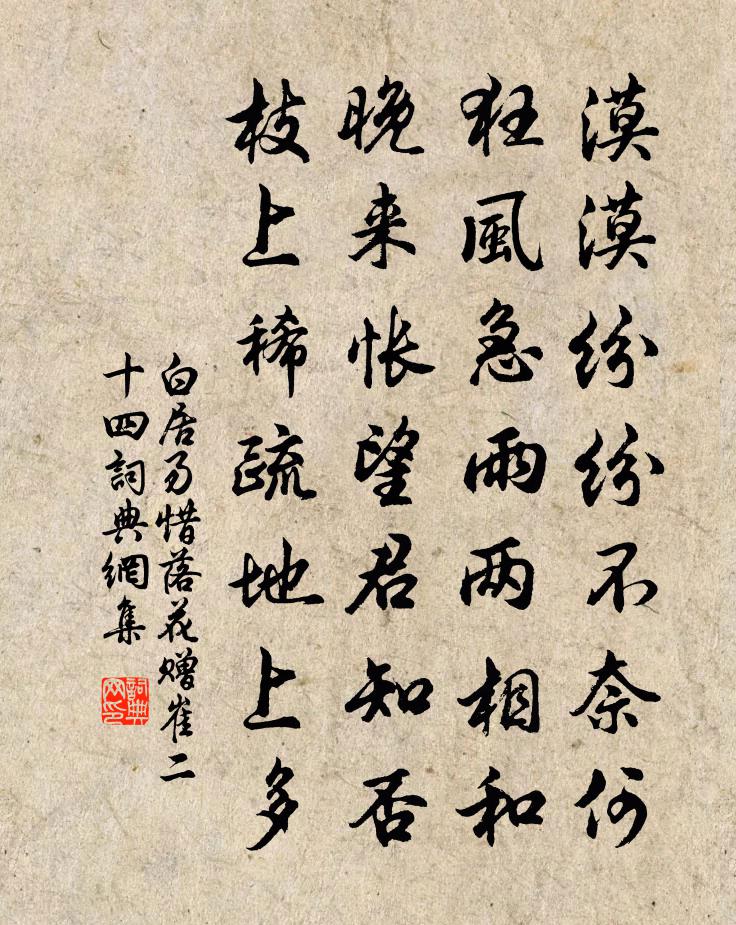 漠漠紛紛不奈何
狂風急雨兩相和
晚来悵望君知否
枝上稀疏地上多
白居易惜落花贈崔二
十四詞典網集
詞典网印